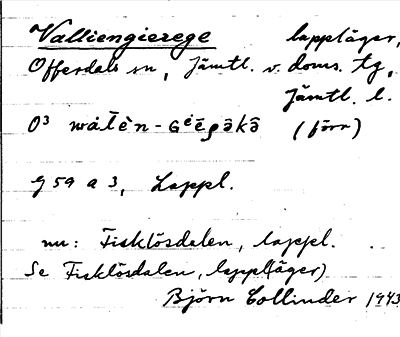 Valliengierege lappläger,
Offerdals sn, Jämtl. v. doms. tg,
Jämtl. l.
O³ wάlēn-Gēρəkə̂ (förr)
G 59 a 3, Lappl.
nu: Fisklösdalen, lappl.
Se Fisklösdalen, lappl(äger)
Björn Collinder 1943